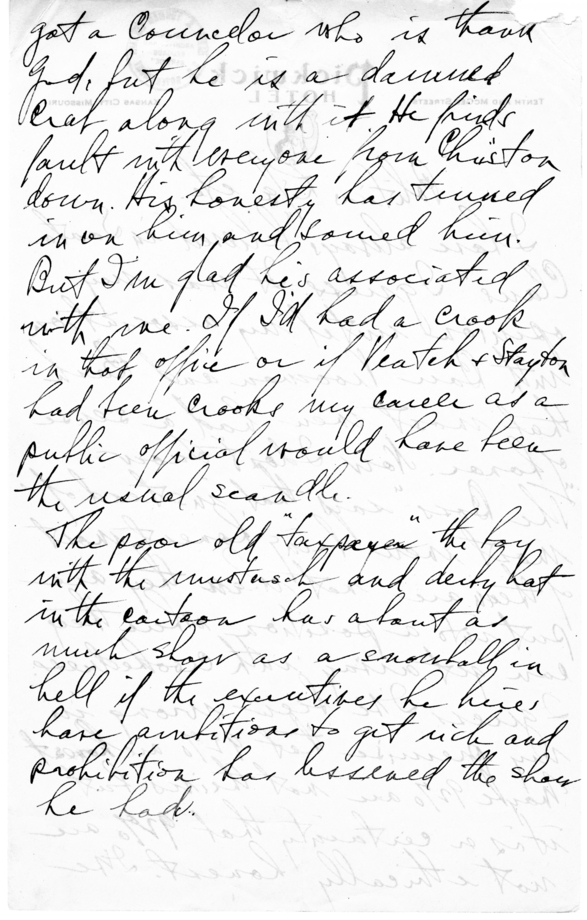 got a Councelor who is thank
God, but he is a damned
crat along with it. He finds
fault with everyone from Christ on
down. His honesty has turned
in on him and soured him.
But I'm glad he's associated
with me. If I'd had a crook
in that office or if Veatch & Stayton
had been crooks my career as a
public official would have been
the usual scandle.
The poor old "taxpayer" the boy
with the mustasch and derby hat
in the cartoon has about as
much show as a snowball in
hell if the executives he hires
have ambitions to get rich and
prohibition has lessened the show
he had.